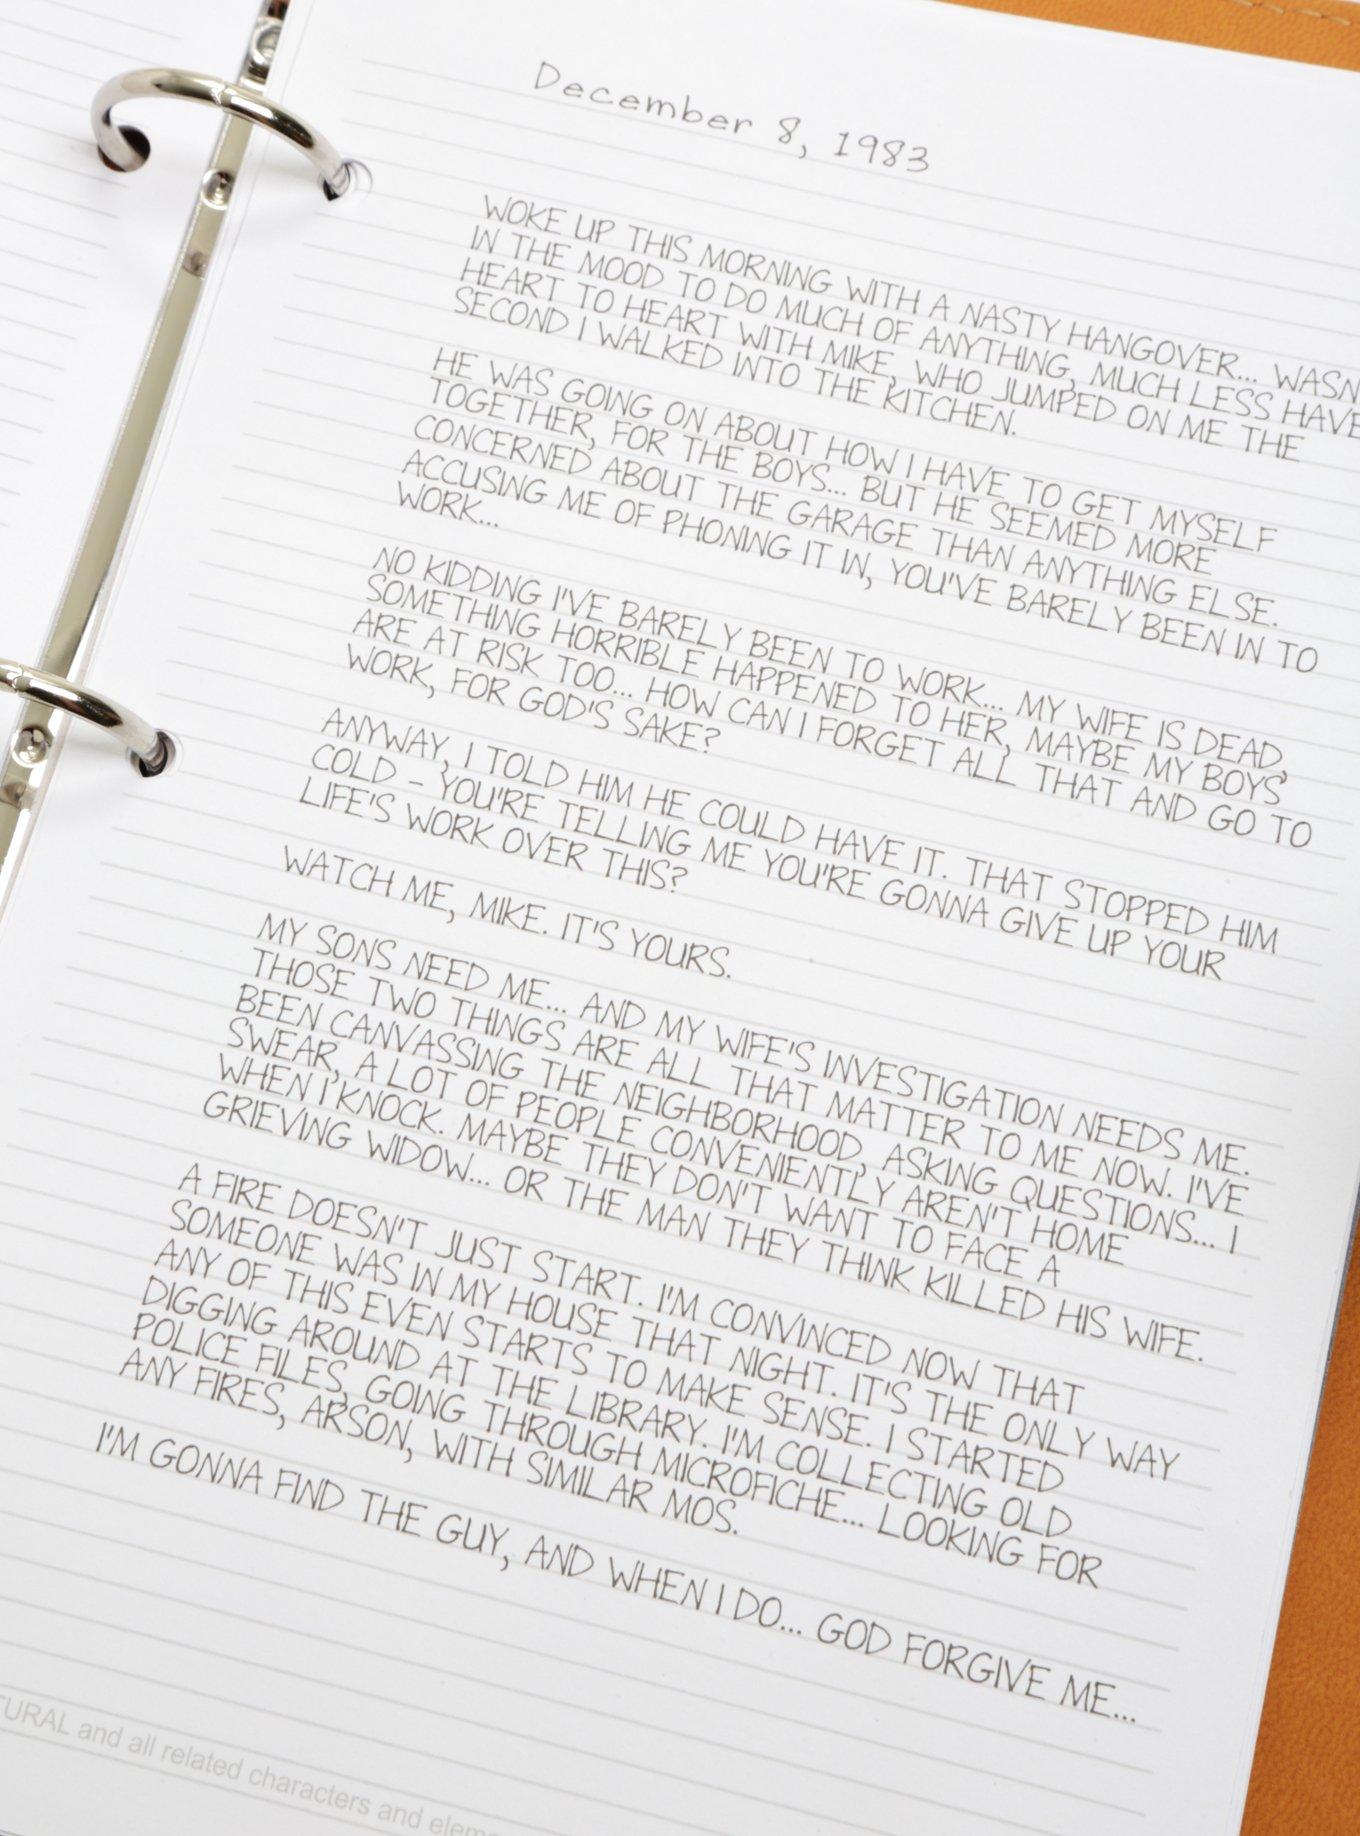 December 8, 1983
WOKE UP THIS MORNING WITH A NASTY HANGOVER... WASN
IN THE MOOD TO DO MUCH OF ANYTHING, MUCH LESS HAVE
HEART TO HEART WITH MIKE, WHO JUMPED ON ME THE
SECOND I WALKED INTO THE KITCHEN.
HE WAS GOING ON ABOUT HOW I HAVE TO GET MYSELF
TOGETHER, FOR THE BOYS... BUT HE SEEMED MORE
CONCERNED ABOUT THE GARAGE THAN ANYTHING ELSE.
ACCUSING ME OF PHONING IT IN, YOU'VE BARELY BEEN IN TO
WORK...
NO KIDDING I'VE BARELY BEEN TO WORK... MY WIFE IS DEAD,
SOMETHING HORRIBLE HAPPENED TO HER, MAYBE MY BOYS'
ARE AT RISK TOO... HOW CAN I FORGET ALL THAT AND GO TO
WORK, FOR GOD'S SAKE?
ANYWAY, I TOLD HIM HE COULD HAVE IT. THAT STOPPED HIM
COLD - YOU'RE TELLING ME YOU'RE GONNA GIVE UP YOUR
LIFE'S WORK OVER THIS?
WATCH ME, MIKE. IT'S YOURS.
MY SONS NEED ME... AND MY WIFE'S INVESTIGATION NEEDS ME.
THOSE TWO THINGS ARE ALL THAT MATTER TO ME NOW. I'VE
BEEN CANVASSING THE NEIGHBORHOOD, ASKING QUESTIONS... I
SWEAR, A LOT OF PEOPLE CONVENIENTLY AREN'T HOME
WHEN I KNOCK. MAYBE THEY DON'T WANT TO FACE A
GRIEVING WIDOW... OR THE MAN THEY THINK KILLED HIS WIFE.
A FIRE DOESN'T JUST START. I'M CONVINCED NOW THAT
SOMEONE WAS IN MY HOUSE THAT NIGHT. IT'S THE ONLY WAY
ANY OF THIS EVEN STARTS TO MAKE SENSE. I STARTED
DIGGING AROUND AT THE LIBRARY. I'M COLLECTING OLD
POLICE FILES, GOING THROUGH MICROFICHE... LOOKING FOR
ANY FIRES, ARSON, WITH SIMILAR MOS.
I'M GONNA FIND THE GUY, AND WHEN I DO... GOD FORGIVE ME...
TURAL and all related characters and eleme